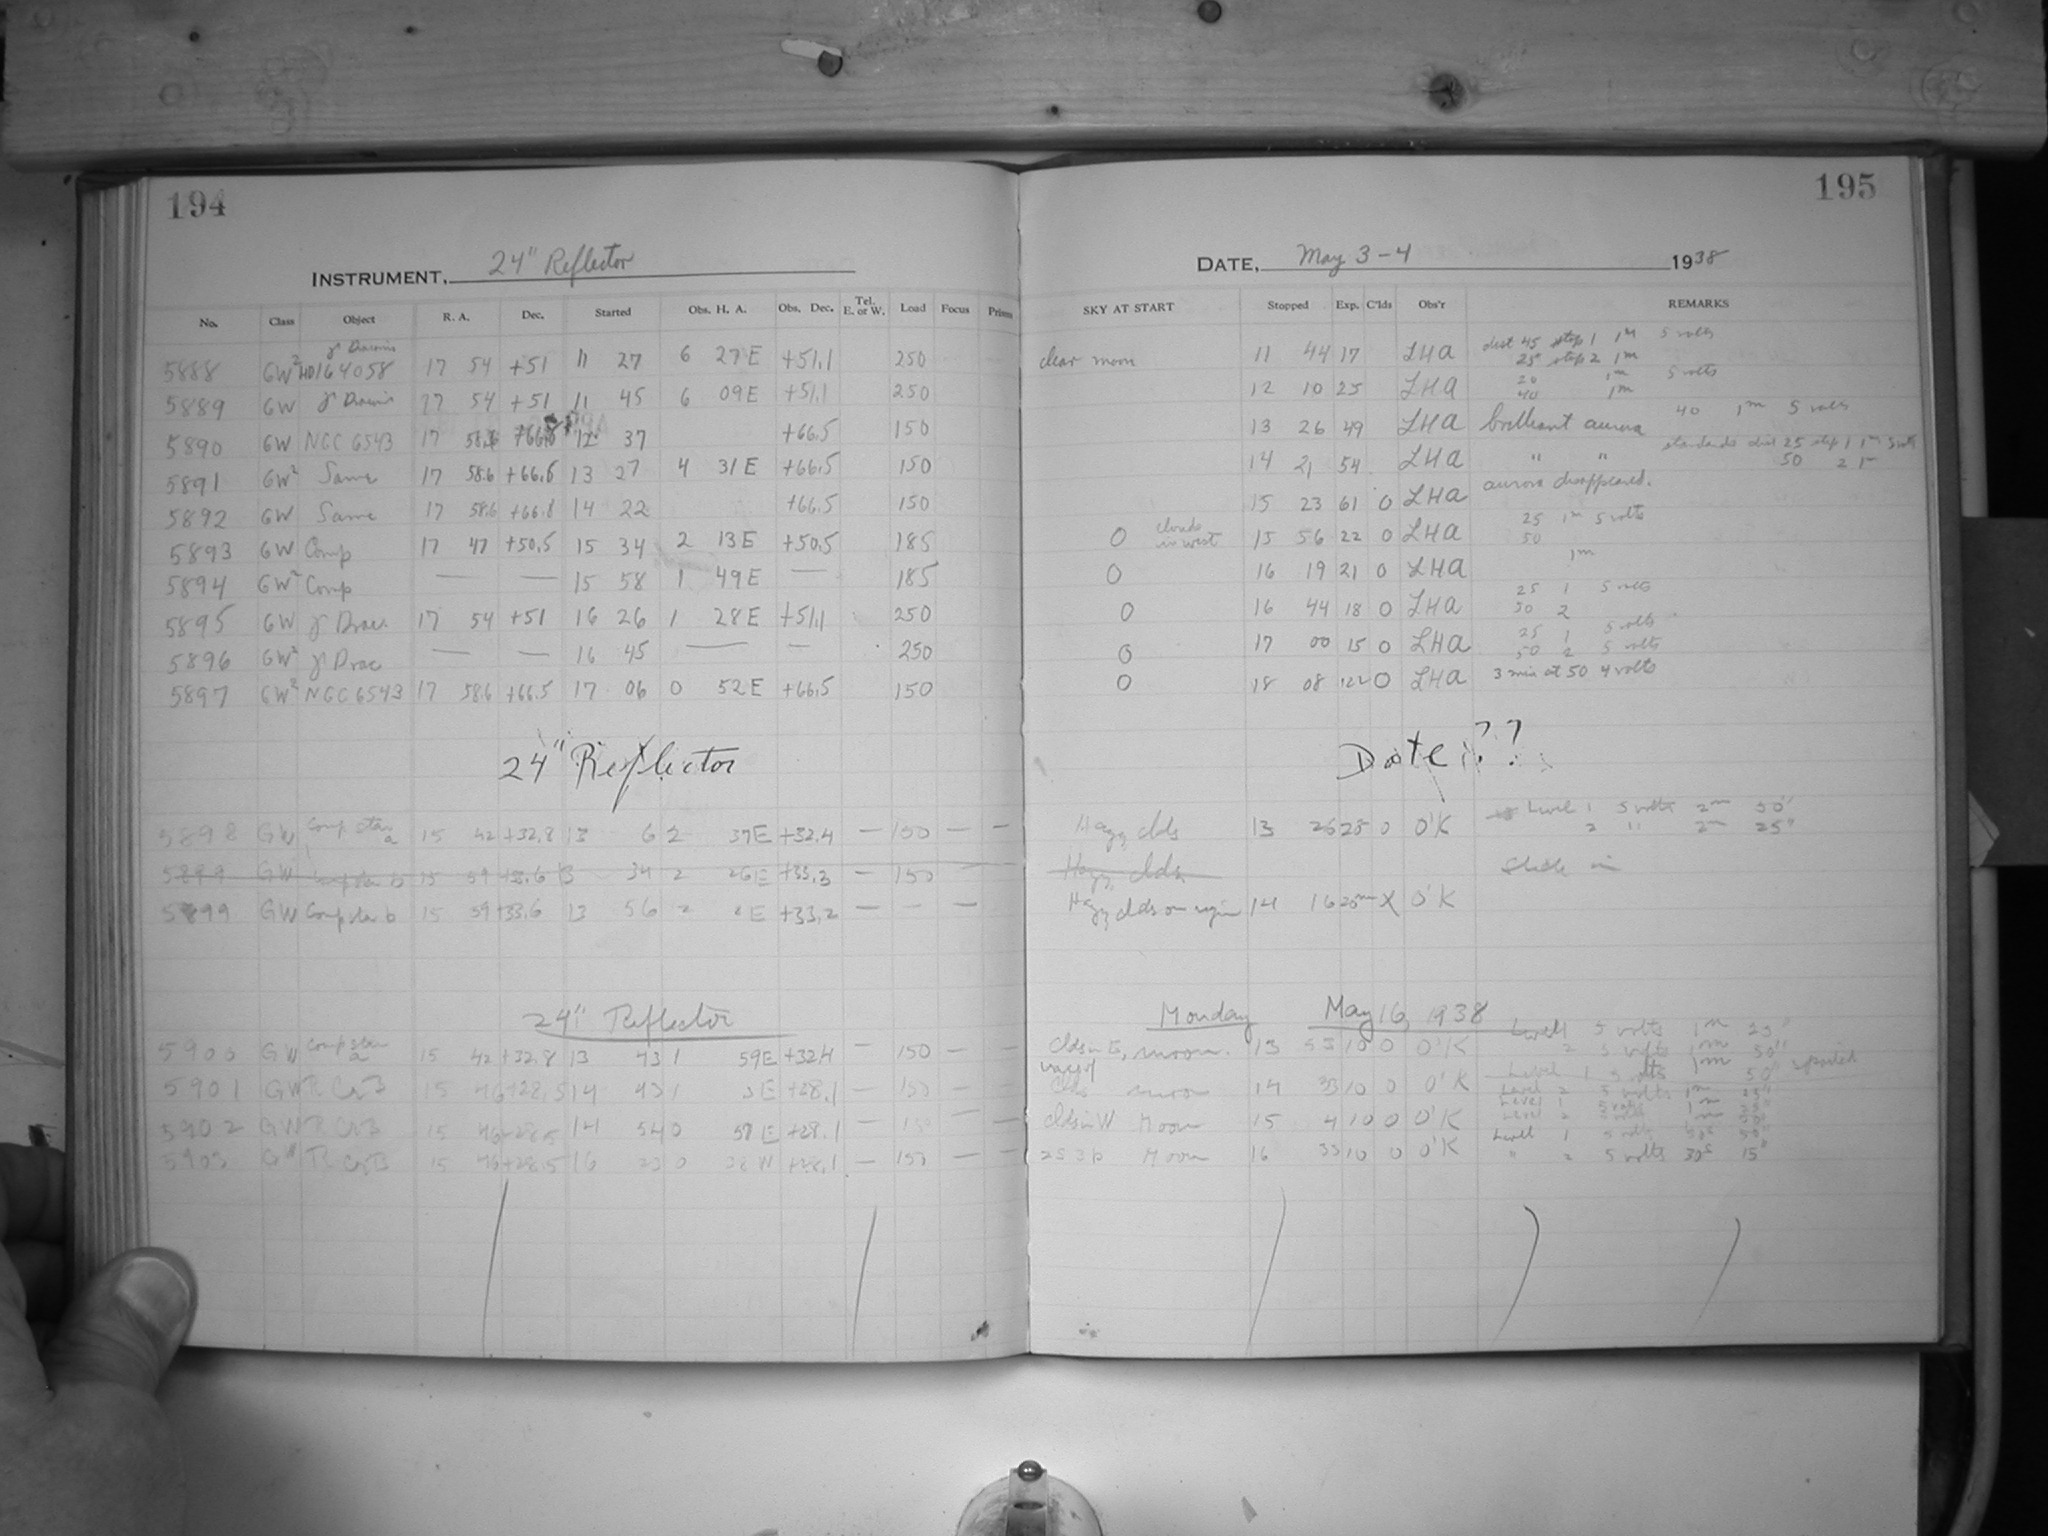 194
INSTRUMENT, 24" Reflector
No. Class Object R. A. Dec. Started Obs. H. A. Obs. Dec. Tel. E. or W. Load Focus Prism
5888 GW² γ Draconis HD164058 17 54 +51 11 27 6 27E +51.1 250
5889 GW γ Draconis 17 54 +51 11 45 6 09E +51.1 250
5890 GW NGC 6543 17 58.6 12 37 +66.5 150
5891 GW² Same 17 58.6 +66.6 13 27 4 31E +66.5 150
5892 GW Same 17 58.6 +66.6 14 22 +66.5 150
5893 GW Comp 17 47 +50.5 15 34 2 13E +50.5 185
5894 GW² Comp — — 15 58 1 49E — 185
5895 GW γ Drac 17 54 +51 16 26 1 28E +51.1 250
5896 GW² γ Drac — — 16 45 — — 250
5897 GW² NGC 6543 17 58.6 +66.5 17 06 0 52E +66.5 150
24" Reflector
5898 GW Comp star a 15 42 +32.8 13 6 2 37E +32.4 — 150 — —
5899 GW Comp star b 15 59 +33.6 13 34 2 26E +33.3 — 150
5899 GW Comp star b 15 59 +33.6 13 56 2 2E +33.2 — — — —
24" Reflector
5900 GW Comp star a 15 42 +32.8 13 43 1 59E +32.4 — 150 — —
5901 GW R CrB 15 46 +28.5 14 43 1 E +28.1 — 150 — —
5902 GW R CrB 15 46 +28.5 14 54 0 57E +28.1 — 150 — —
5903 GW R CrB 15 46 +28.5 16 23 0 38W +28.1 — 150 — —
195
DATE, May 3-4 1938
SKY AT START Stopped Exp. C'lds Obs'r REMARKS
clear moon 11 44 17 LHA dist 45 step 1 1m 5 volts
25 step 2 1m
12 10 25 LHA 20 1m 5 volts
40 1m
13 26 49 LHA brilliant aurora 40 1m 5 volts
14 21 54 LHA " " standards dist 25 step 1 1m 5 volts
50 2 1m
15 23 61 0 LHA aurora disappeared.
0 clouds in west 15 56 22 0 LHA 25 1m 5 volts
50
0 16 19 21 0 LHA 1m
0 16 44 18 0 LHA 25 1 5 volts
50 2
0 17 00 15 0 LHA 25 1 5 volts
50 2 5 volts
0 18 08 122 0 LHA 3 min at 50 4 volts
Date ??
Hazy clds 13 26 25 0 O'K Level 1 5 volts 2m 50"
2 " 2m 25"
Hazy clds Slide in
Hazy clds on 14 16 20m X O'K
Monday May 16, 1938
clds in E, moon. 13 53 10 0 O'K Level 1 5 volts 1m 25"
2 5 volts 1m 50"
clds moon 14 33 10 0 O'K Level 1 5 volts 1m 50"
Level 2 5 volts 1m 25"
clds in W Moon 15 4 10 0 O'K Level 1
Level 2
Moon 16 33 10 0 O'K Level 1 5 volts 30s 50"
" 2 5 volts 30s 15"